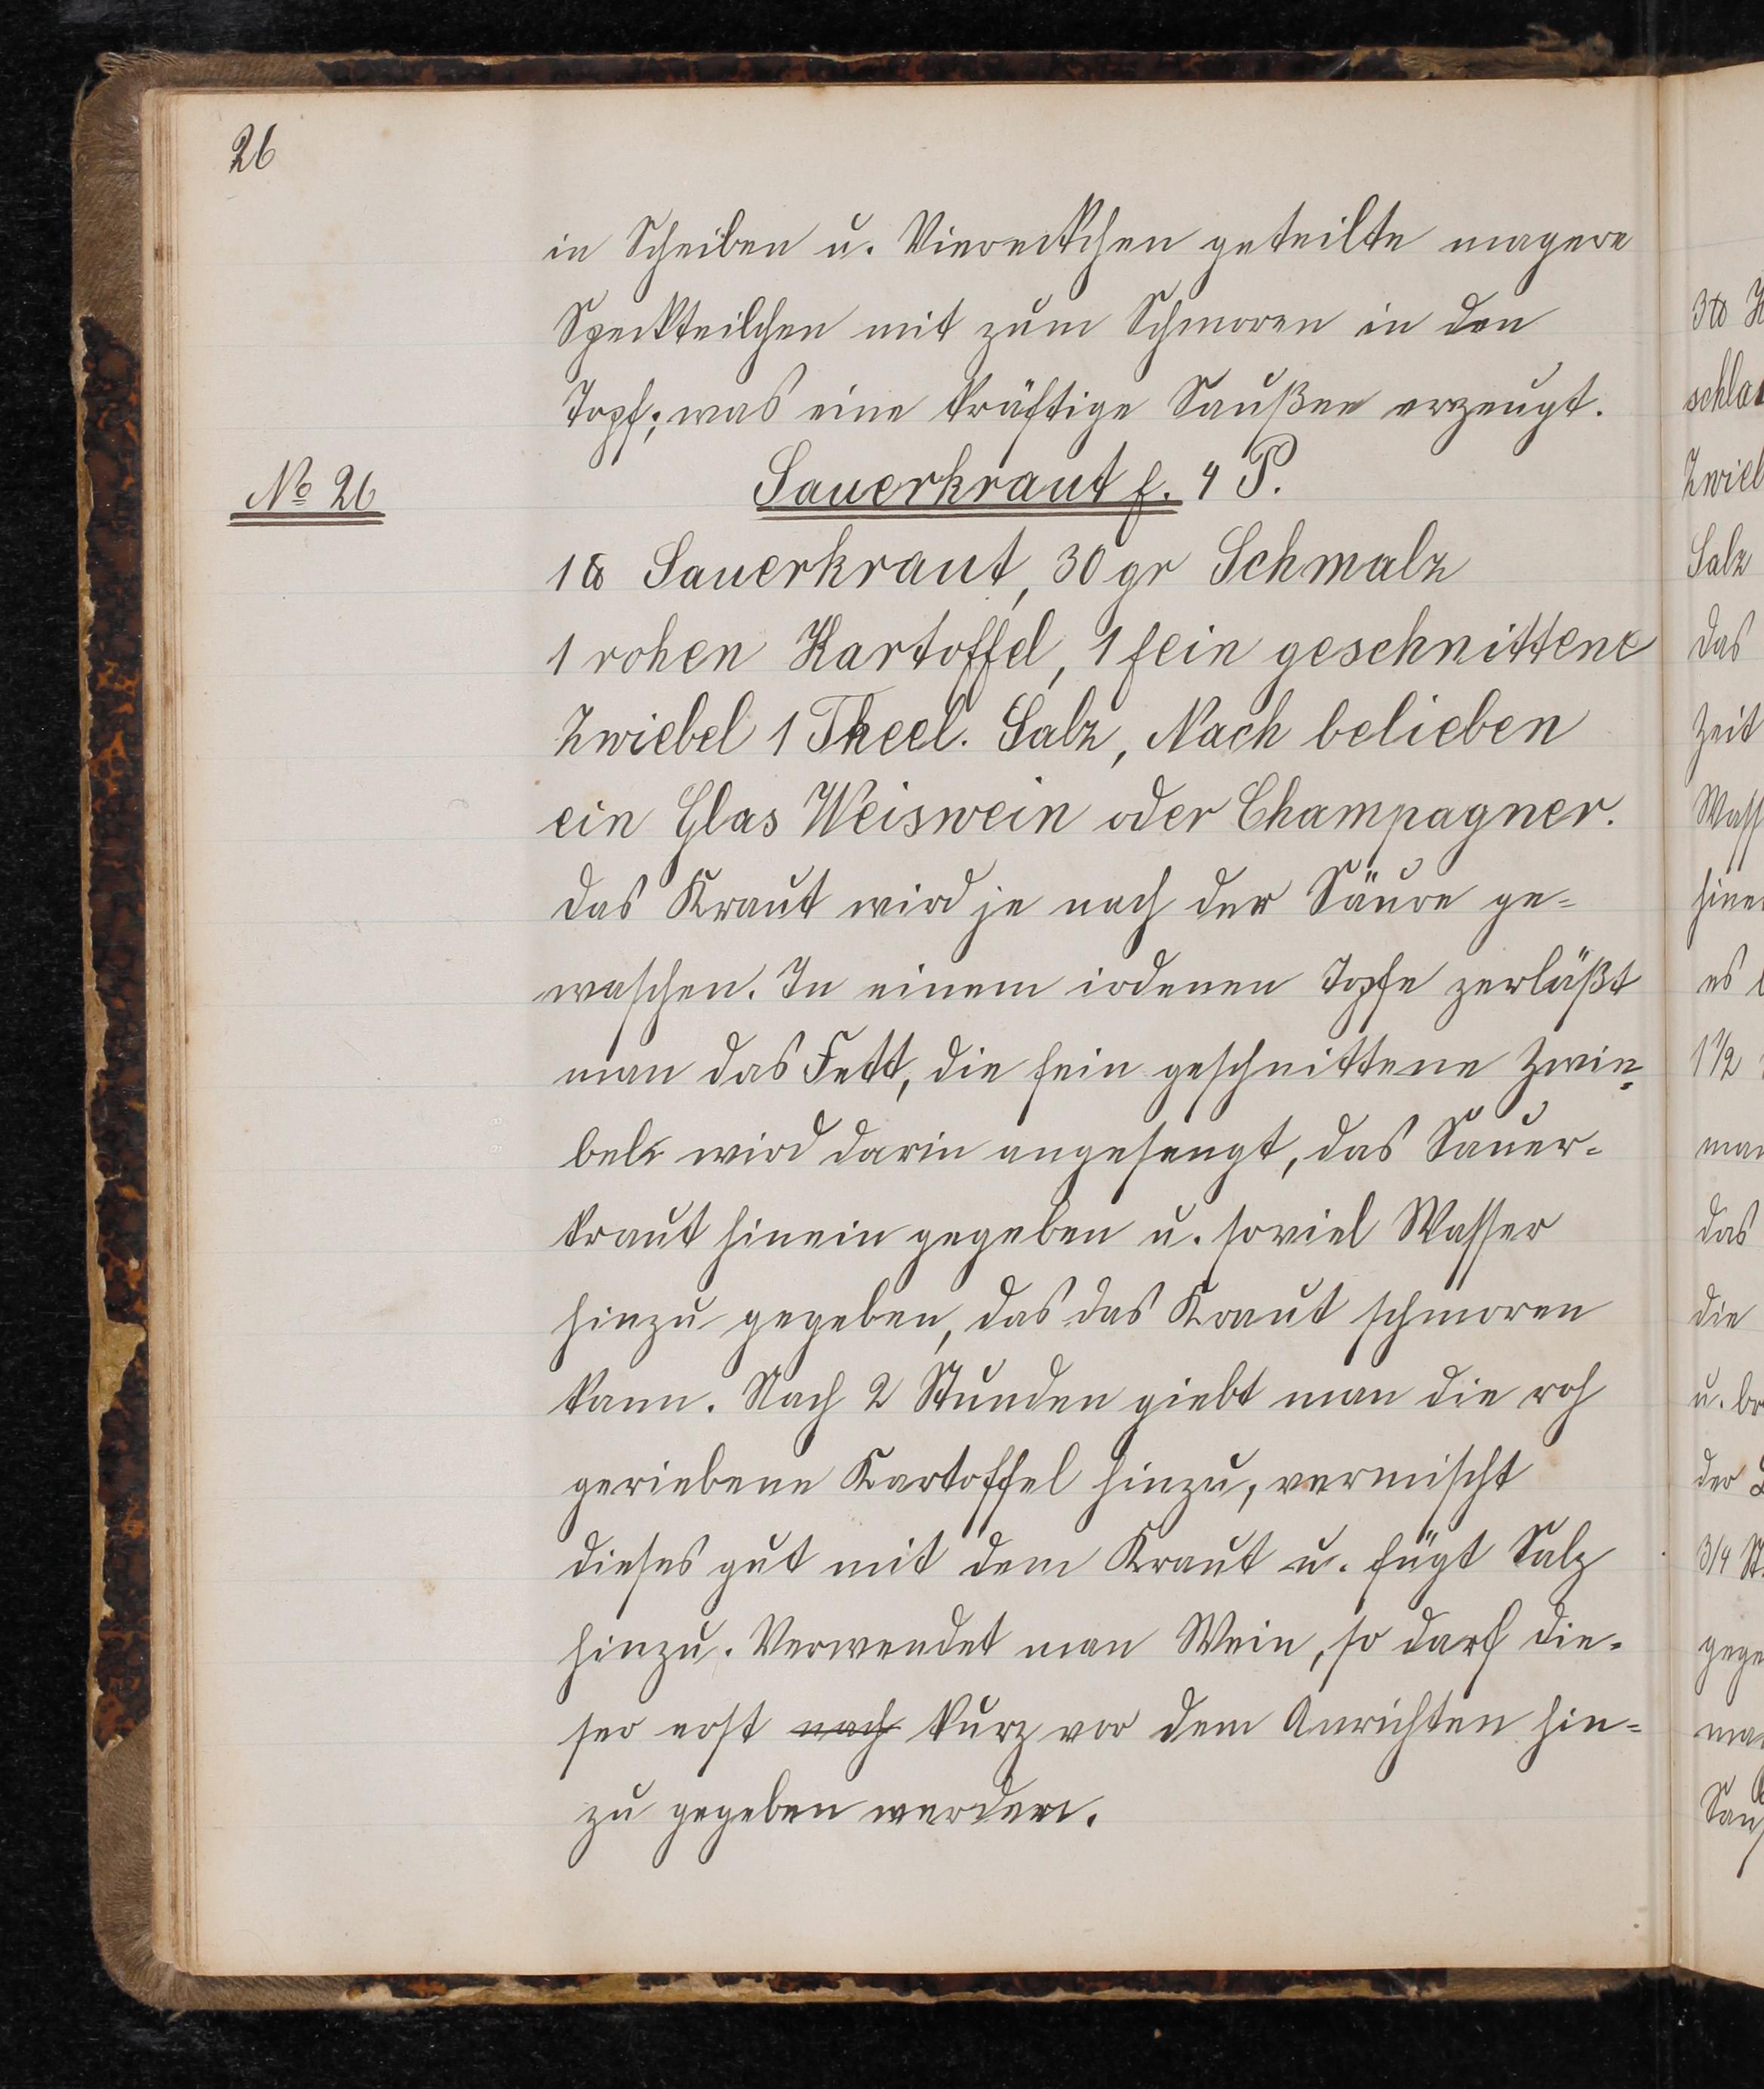 26
in Scheiben u. Viereckchen geteilte magere
Speckteilchen mit zum Schmoren in den
Topf; was eine kräftige Saußen erzeugt.
No 26
Sauerkraut f. 4 P.
1 ℔ Sauerkraut, 30 gr Schmalz
1 rohen Kartoffel, 1 fein geschnittene
Zwiebel 1 Theel. Salz, Nach belieben
ein Glas Weiswein oder Champagner.
das Kraut wird je nach der Säure ge=
waschen. In einem irdenen Topfe zerläßt
man das Fett, die fein geschnittene Zwie=
bel wird darin angesengt, das Sauer=
kraut hinein gegeben u. soviel Wasser
hinzu gegeben, das das Kraut schmoren
kann. Nach 2 Stunden giebt man die roh
geriebene Kartoffel hinzu, vermischt
dieses gut mit dem Kraut u. fügt Salz
hinzu. Verwendet man Wein, so darf die=
ser erst noch kurz vor dem Anrichten hin=
zu gegeben werden.
3 ℔
schla
Zwieb
Salz
das
Zeit
Wass
hinei
es
1 1/2
man
das
die
u. br
der
3/4 St.
gege
man